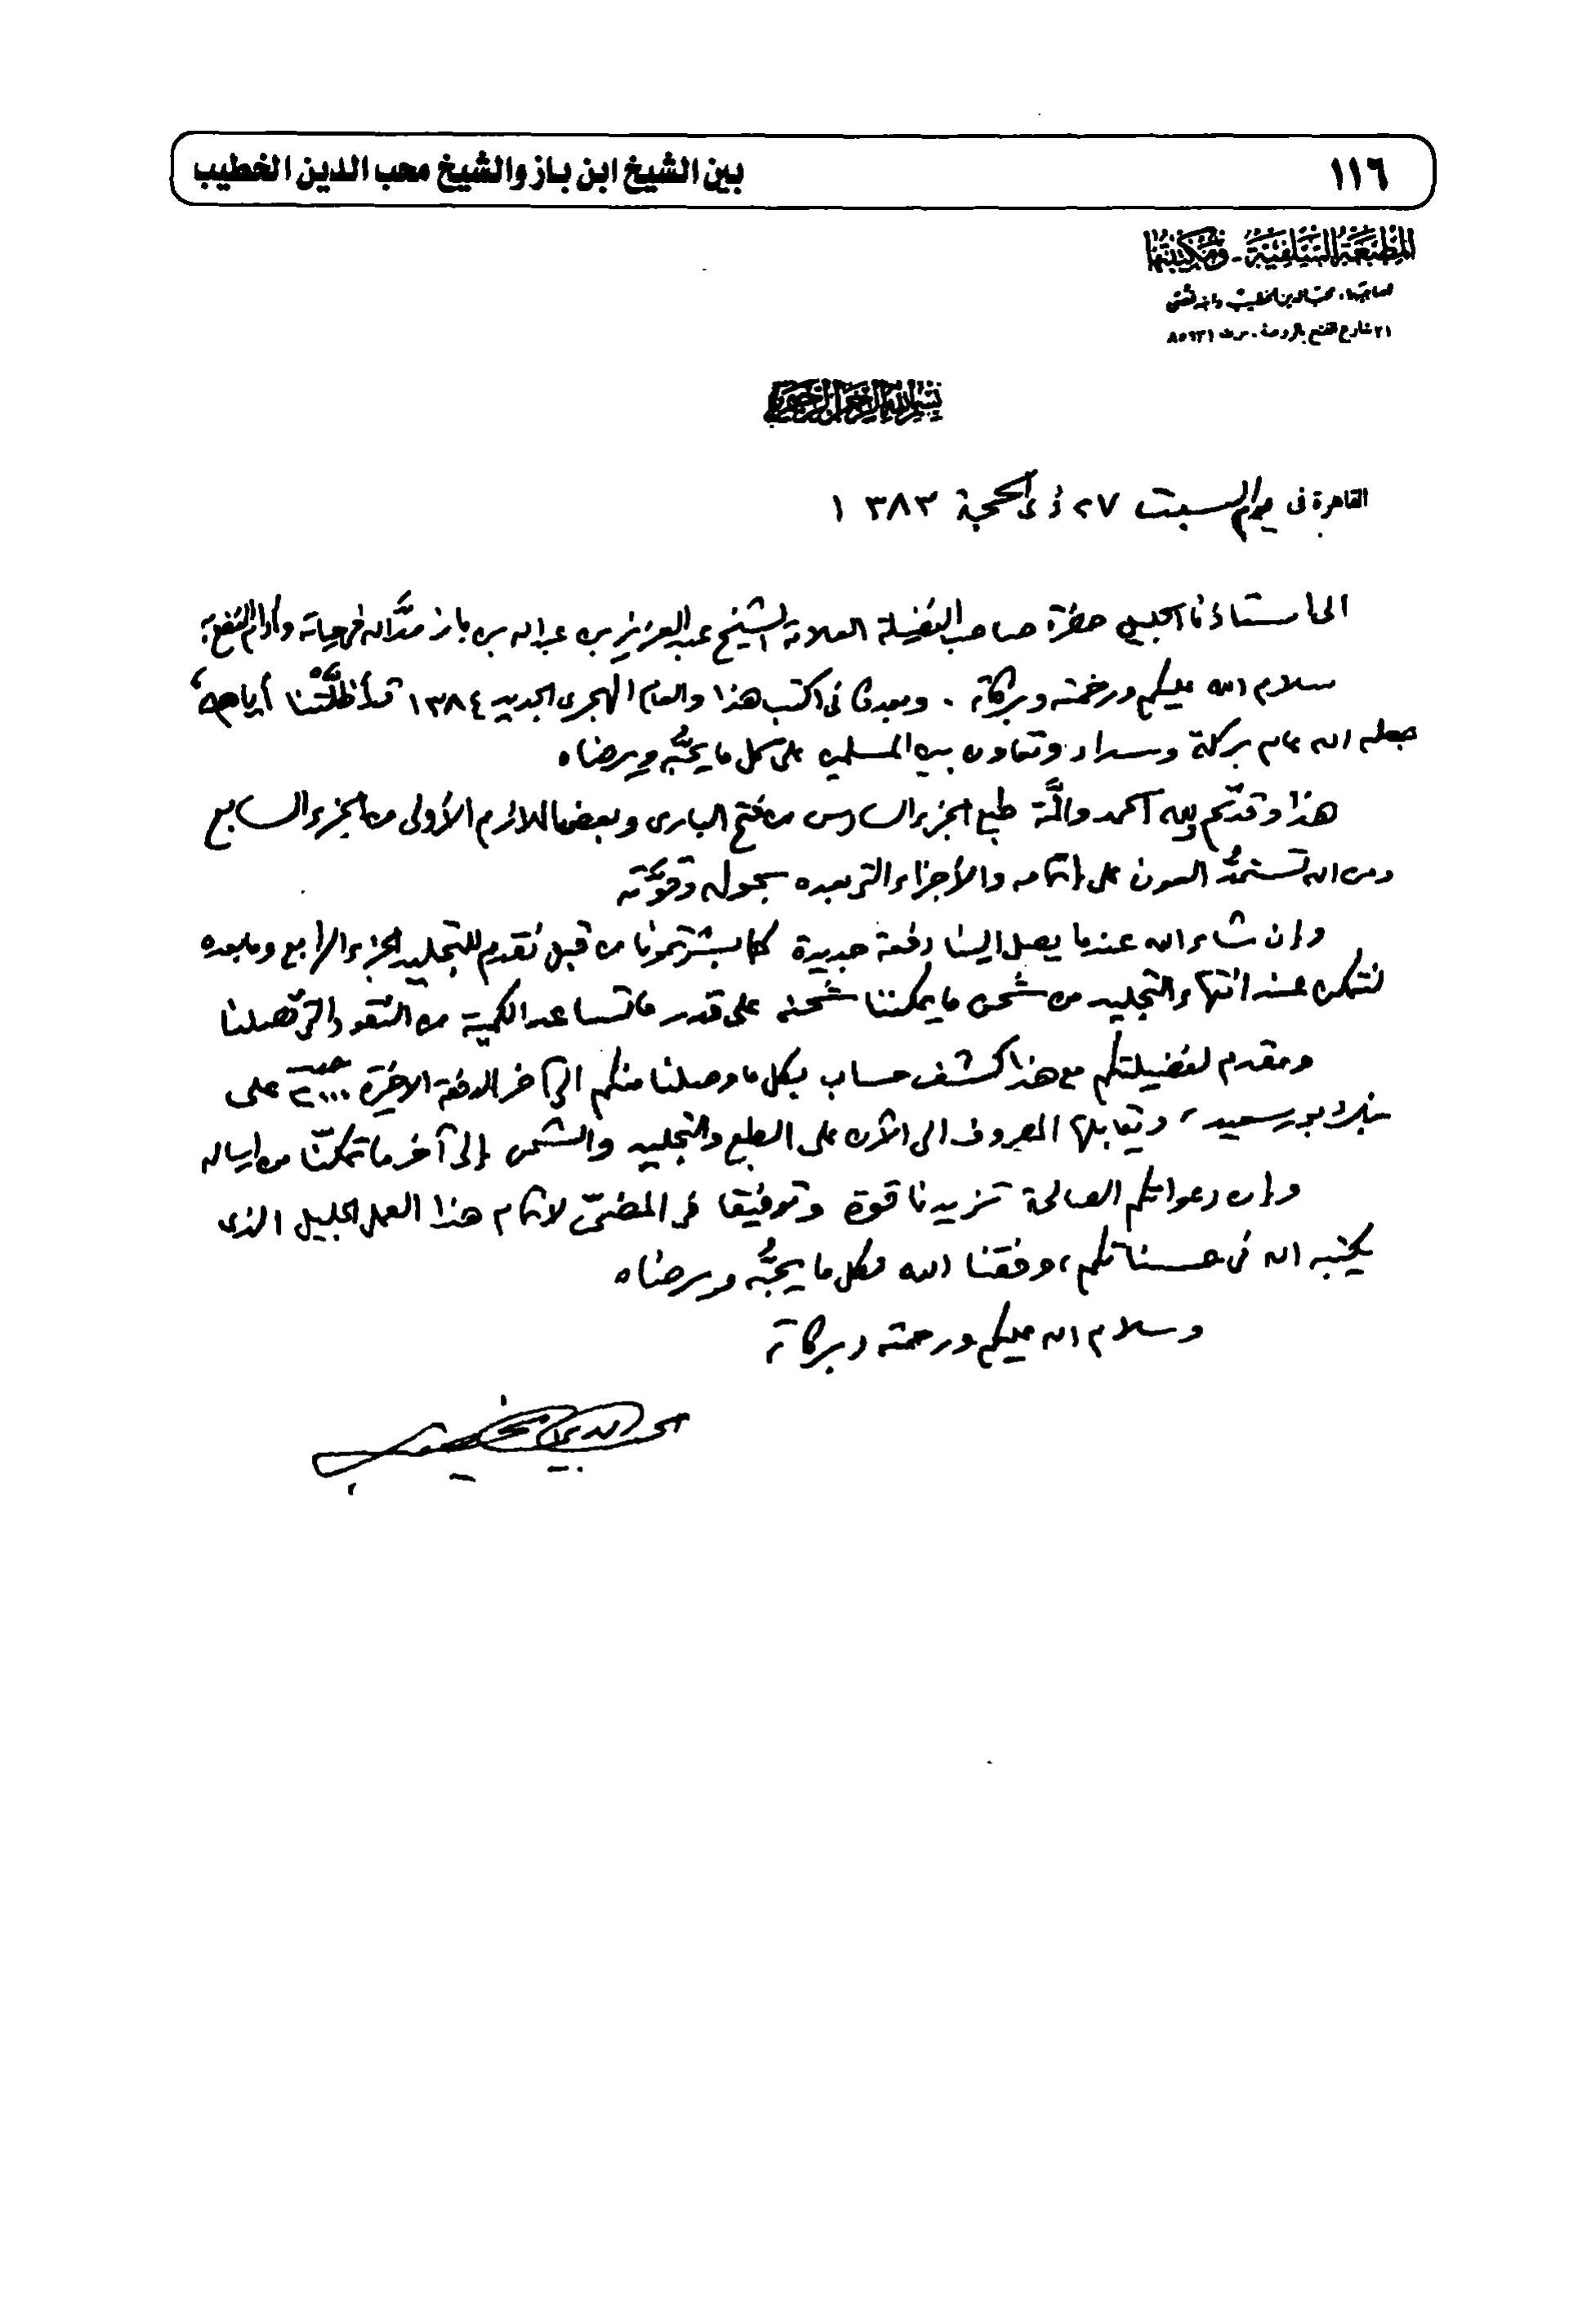 ١١٦
بين الشيخ ابن باز والشيخ محب الدين الخطيب
المطبعة السلفية - ومكتبتها
لصاحبها: محب الدين الخطيب
٢١ شارع الفتح بالروضة
بسم الله الرحمن الرحيم
القاهرة في يوم السبت ٢٧ ذي الحجة ١٣٨٣
الى استاذنا الجليل حضرة صاحب الفضيلة العلامة الشيخ عبد العزيز بن عبد الله بن باز مدَّ الله في حياته وأدام النفع به
سلام الله عليكم ورحمته وبركاته. وبعد فاني اكتب هذا والعام الهجرى الجديد ١٣٨٤ قد أظلَّتْنا أيامه،
جعله الله عام بركة وسداد وتعاون بين المسلمين على كل ما يحبُّه ويرضاه
هذا وقد تم ولله الحمد والمنَّة طبع الجزء السادس من فتح البارى وبعض الملازم الأولى من الجزء السابع
ومن الله نستمدُّ العون على إتمامه والأجزاء التي بعده بحوله وقوَّته
وإن شاء الله عندما يصل الينا دفعة جديدة كما بشرتمونا من قبل نقدم للتجليد الجزء الرابع وما بعده
لنتمكن عند انتهاء التجليد من شحن ما يمكننا شحنه على قدر ما تساعد الكمية من النقود التي تصلنا
ومقدم لفضيلتكم مع هذا كشف حساب بكل ما وصلنا منكم الى آخر الدفعة الاخيرة على
بنك بور سعيد، وتقابلها المصروف الى الآن على الطبع والتجليد والشحن إلى آخر ما تمكنَّا من إرساله
وإن دعواتكم الصالحة تزيدنا قوة وتوفيقا في المضيّ لاتمام هذا العمل الجليل الذى
يكتبه الله في حسناتكم، وفقنا الله لكل ما يحبُّه ويرضاه
وسلام الله عليكم ورحمته وبركاته
محب الدين الخطيب